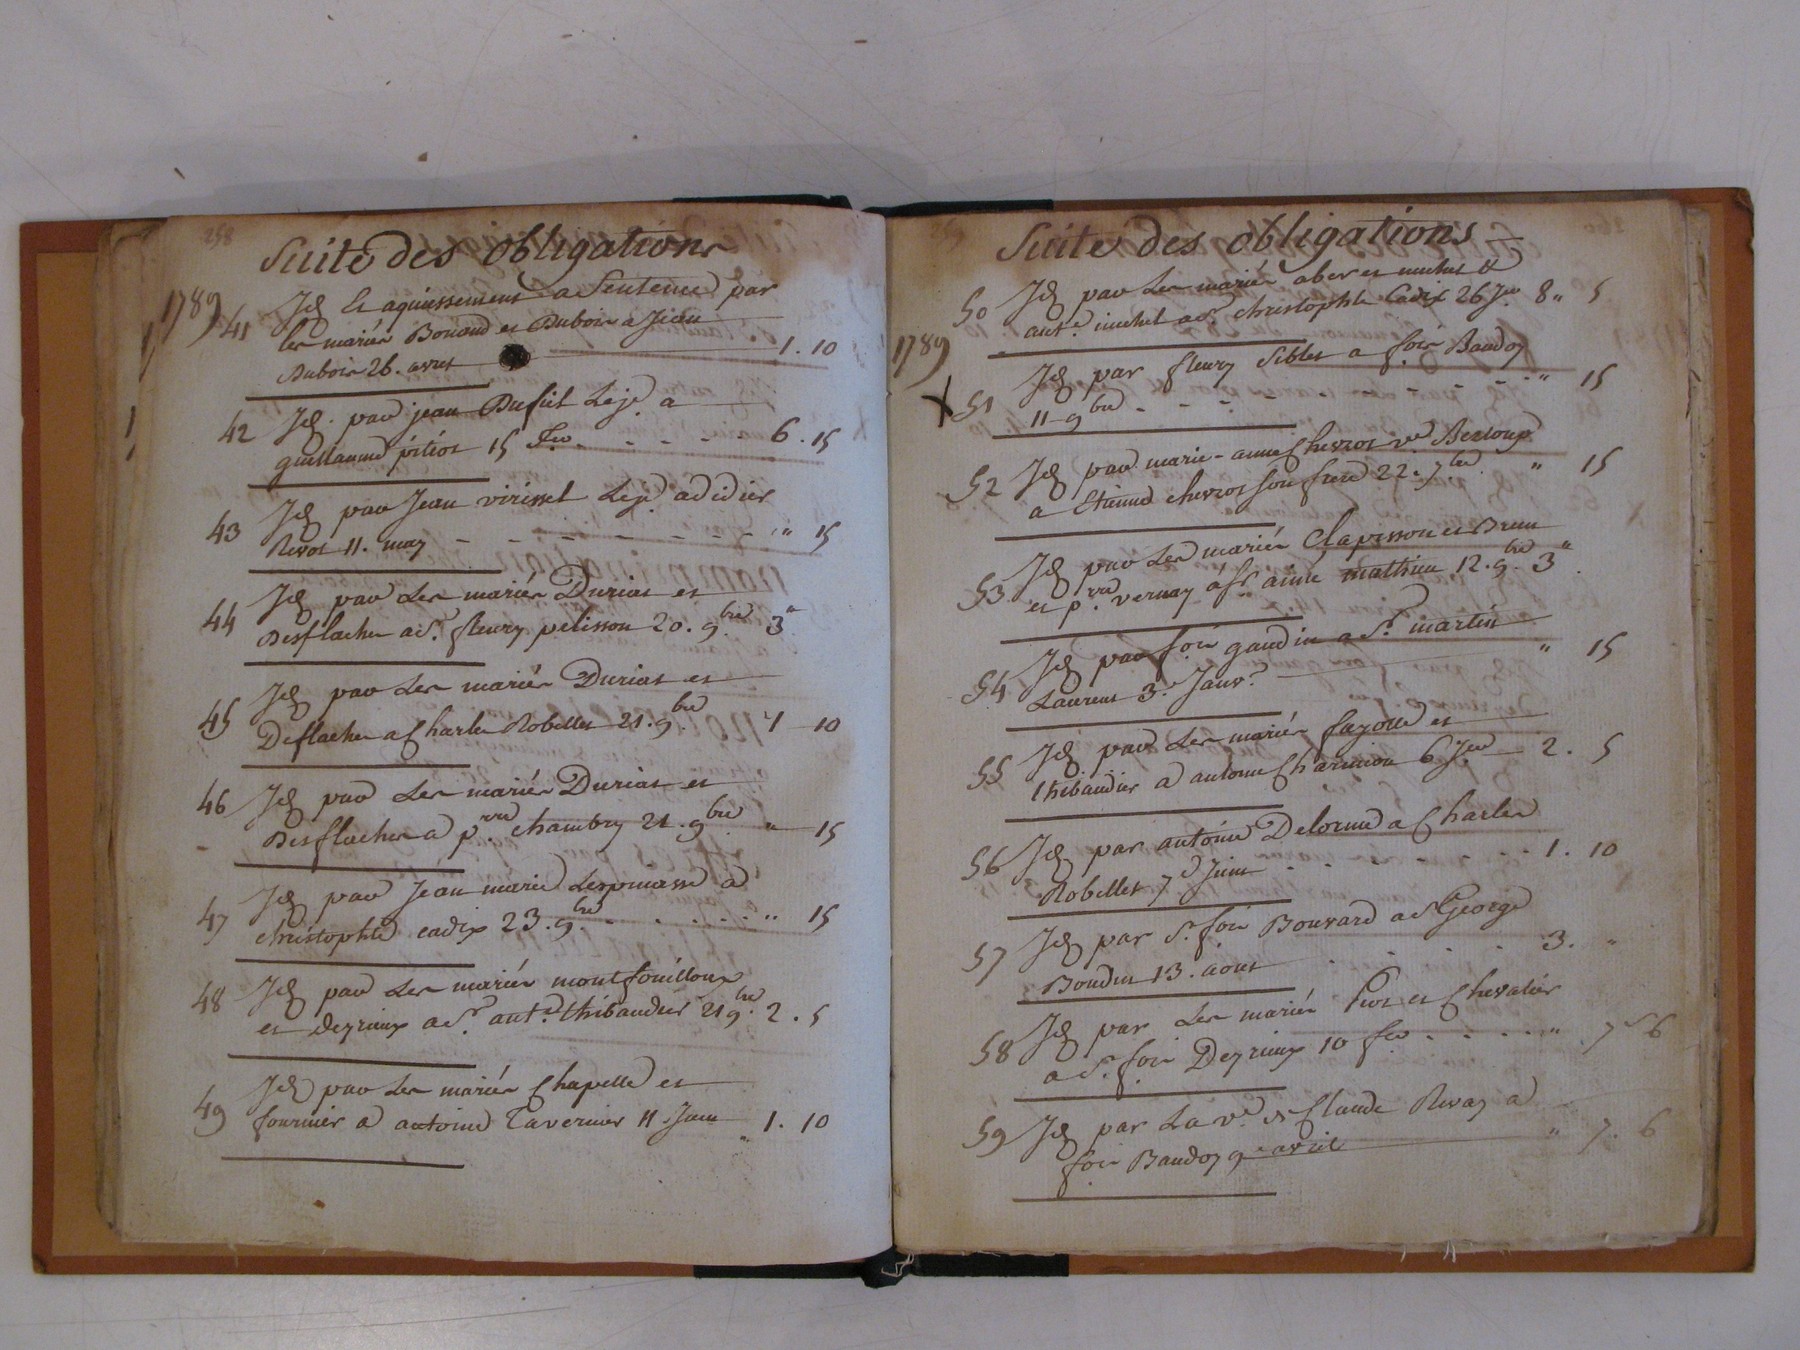 258
Suite des obligations
1789
41 Jd. Et aquiessement a Sentence par
les mariés Bonand et Dubois a Jean
Dubois 26. avril 1. 10
42 Jd. par jean Dufut Lejé a
guillaume pitiot 15 fev. - - - - 6. 15
43 Jd. par Jean virisset Lejé a didier
Revot 11. may - - - - - - - " 15
44 Jd. par Les mariés Durias et
Desflaches a Sr. fleury pelisson 20. 9bre 3 "
45 Jd. par Les mariés Durias et
Deflaches a Charles Robellet 21. 9bre 4 10
46 Jd. par Les mariés Durias et
Desflaches a prre. chambry 21. 9bre " 15
47 Jd. par Jean marie Lespinasse a
christophle cadix 23. 9bre . . . . . " 15
48 Jd. par Les mariés montfouilloux
et Deyrieux a Sr. ant.e thibaudier 21 9bre. 2. 5
49 Jd. par Les mariés Chapelle et
fournier a antoine Tavernier 11. Juin " 1. 10
Suite des obligations
1789
50 Jd. par Les mariés et michel &
ant.e michel a Sr. christophle Cadix 26 8 " 5
51 Jd. par fleury Siblet a fois Baudoy
11 9bre - - - " 15
52 Jd. par marie-anne Chevrot ve. Berloup
a Etienne chevrot son frere 22. 7bre. " 15
53 Jd. par Les mariés Clapisson et Brun
et prre. vernay à Sr. aimé mathieu 12. 9bre. 3 "
54 Jd. par fois gaudin a Sr. martin
Laurent 3. Janvr. " 15
55 Jd. par Les mariés fayolle et
thibaudier a antoine Charmion 6 2. 5
56 Jd. par antoine Delorme a Charles
Robellet 7e Juin - - - - - 1. 10
57 Jd. par Sr. fois Bouvard a Sr George
Boudin 13. aout . . . . 3. "
58 Jd. par Les mariés Piot et Chevalier
a Sr. fois Deyrieux 10 fev . . . . " 7 6
59 Jd. par La ve. de Claude Rivay a
fois Baudoy 9 avril " 7. 6